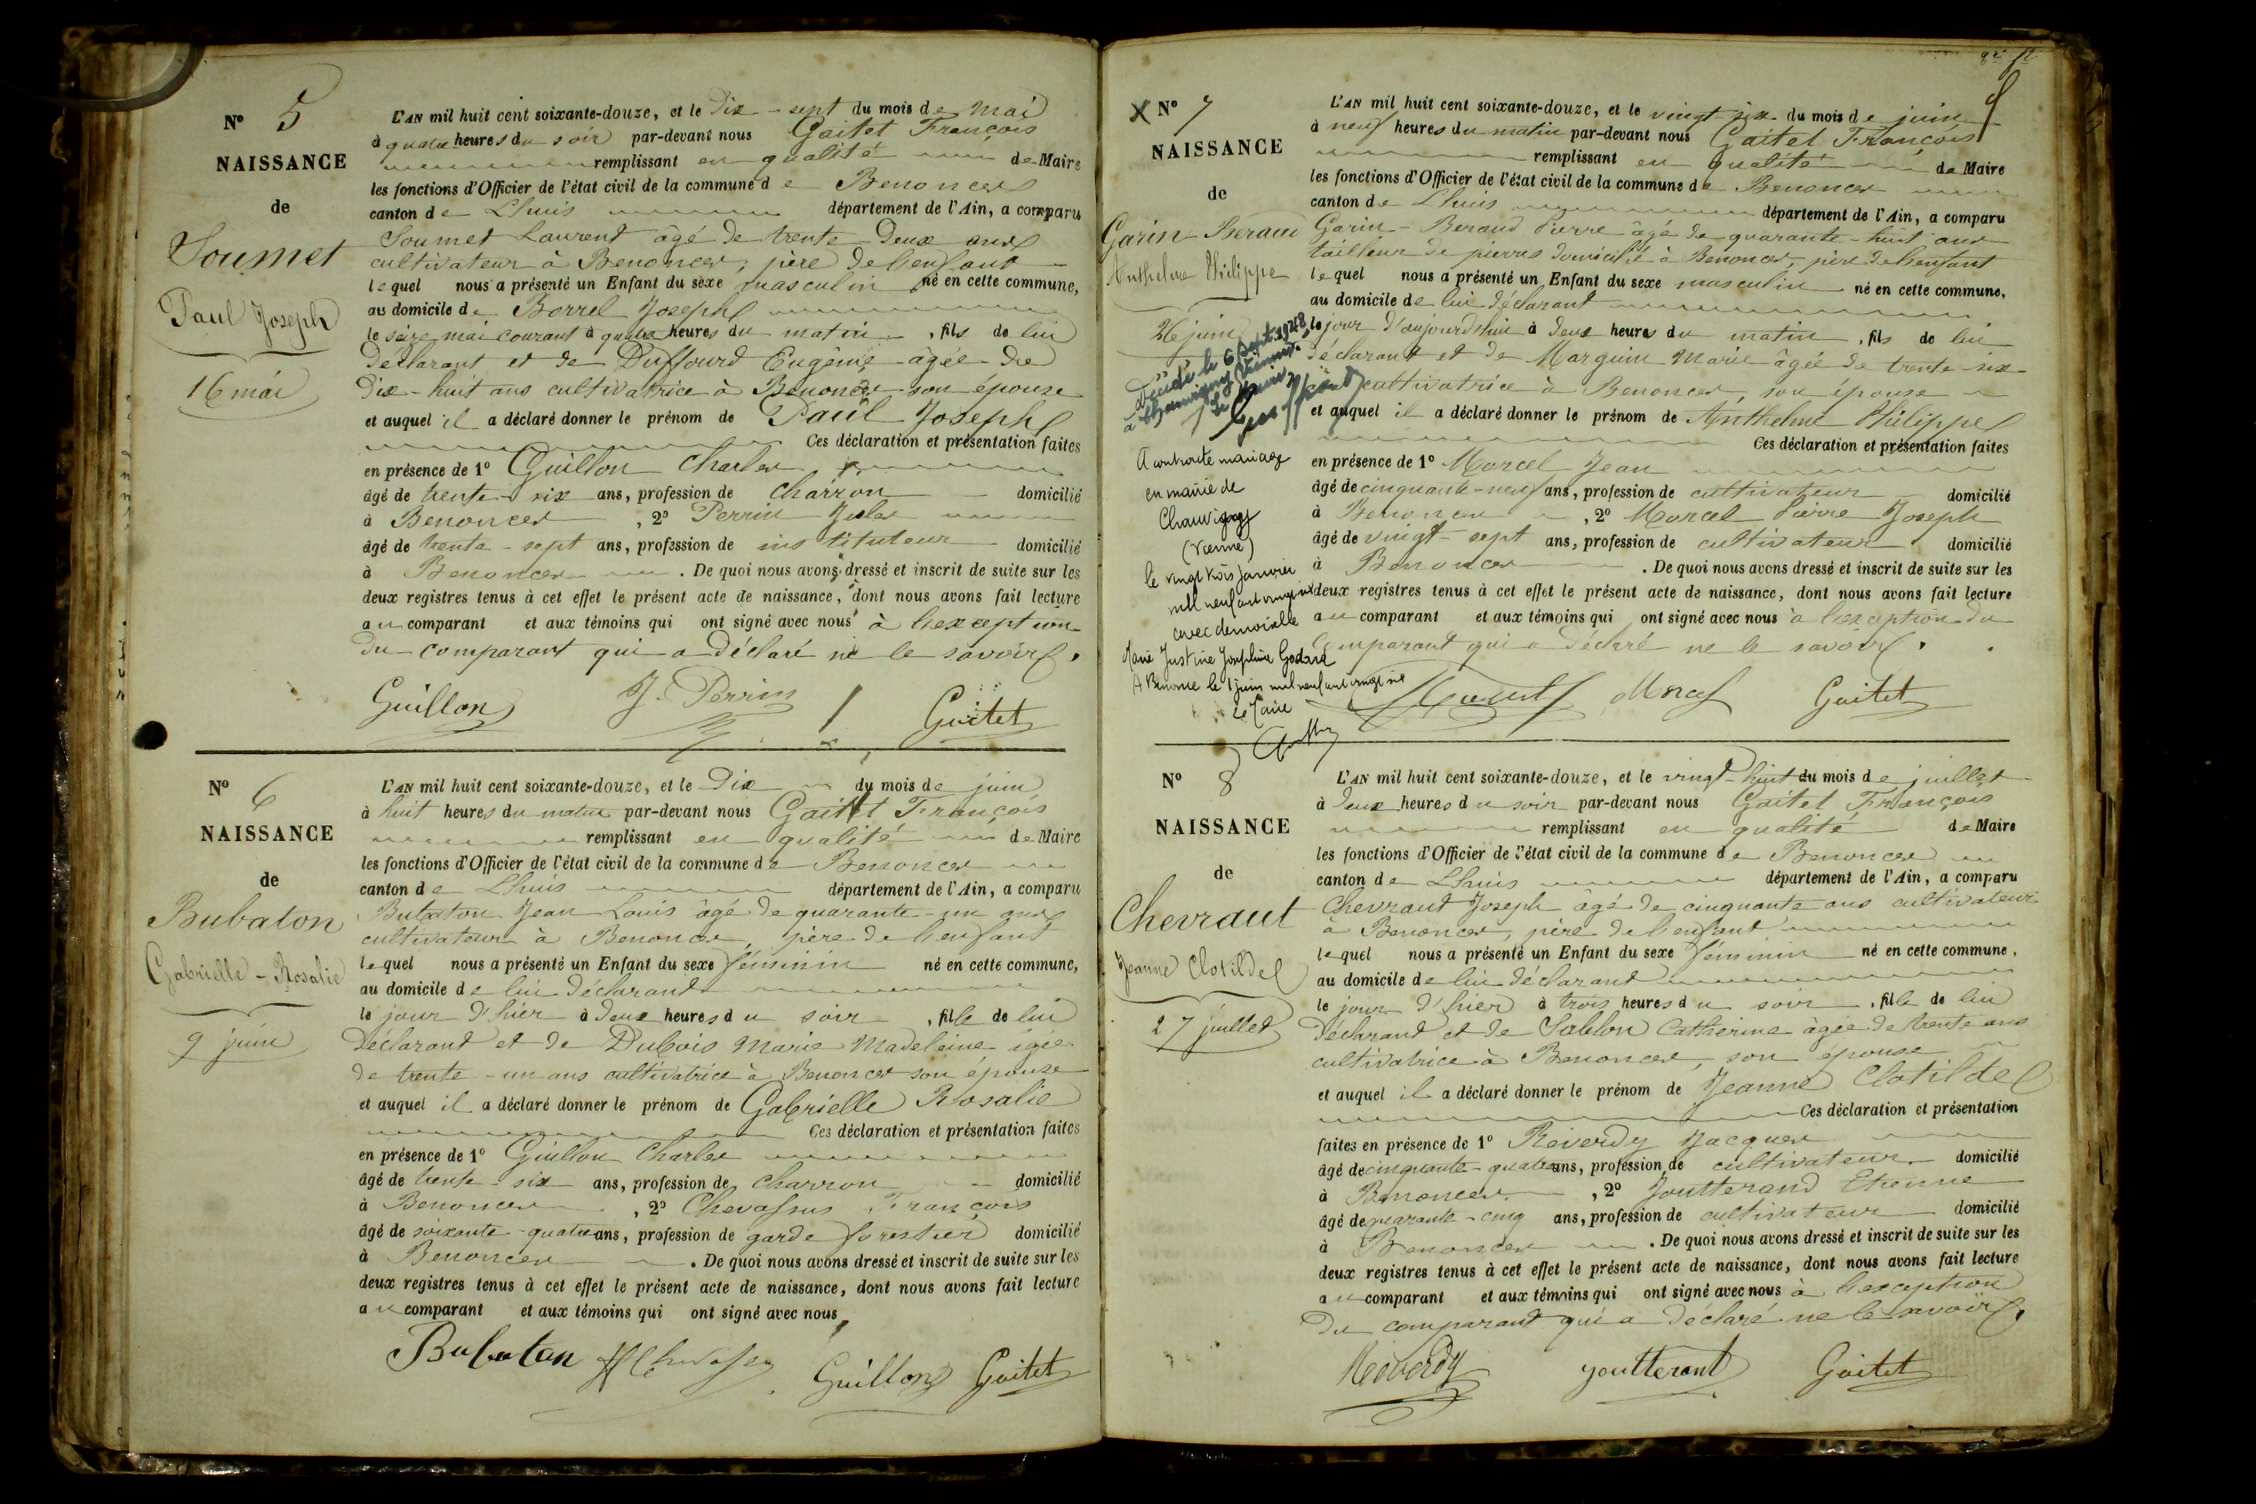 N° 5
NAISSANCE
de
Soumet
Paul Joseph
16 mai
L'AN mil huit cent soixante-douze, et le Dix-sept du mois de Mai
à quatre heures du soir par-devant nous Gaitet François
remplissant en qualité de Maire
les fonctions d'Officier de l'état civil de la commune de Benonces
canton de Lhuis département de l'Ain, a comparu
Soumet Laurent âgé de trente Deux ans
cultivateur à Benonces, père de l'enfant
lequel nous a présenté un Enfant du sexe masculin né en cette commune,
au domicile de Borrel Joseph
le seize mai courant à quatre heures du matin, fils de lui
Déclarant et de Duffourd Eugénie âgée de
Dix-huit ans cultivatrice à Benonces son épouse
et auquel il a déclaré donner le prénom de Paul Joseph
Ces déclaration et présentation faites
en présence de 1° Guillon Charles
âgé de trente-six ans, profession de charron domicilié
à Benonces, 2° Perrin Jules
âgé de trente-sept ans, profession de instituteur domicilié
à Benonces. De quoi nous avons dressé et inscrit de suite sur les
deux registres tenus à cet effet le présent acte de naissance, dont nous avons fait lecture
au comparant et aux témoins qui ont signé avec nous à l'exception
Du comparant qui a Déclaré ne le savoir.
Guillon J. Perrin Gaitet
N° 6
NAISSANCE
de
Bubaton
Gabrielle-Rosalie
9 juin
L'AN mil huit cent soixante-douze, et le Dix du mois de juin
à huit heures du matin par-devant nous Gaitet François
remplissant en qualité de Maire
les fonctions d'Officier de l'état civil de la commune de Benonces
canton de Lhuis département de l'Ain, a comparu
Bubaton Jean Louis âgé de quarante-un ans
cultivateur à Benonces, père de l'enfant
lequel nous a présenté un Enfant du sexe féminin né en cette commune,
au domicile de lui déclarant
le jour d'hier à deux heures du soir, fille de lui
Déclarant et de Dubois Marie Madeleine âgée
de trente-un ans cultivatrice à Benonces son épouse
et auquel il a déclaré donner le prénom de Gabrielle Rosalie
Ces déclaration et présentation faites
en présence de 1° Guillon Charles
âgé de trente-six ans, profession de charron domicilié
à Benonces, 2° Chevassus François
âgé de soixante-quatre ans, profession de garde forestier domicilié
à Benonces. De quoi nous avons dressé et inscrit de suite sur les
deux registres tenus à cet effet le présent acte de naissance, dont nous avons fait lecture
au comparant et aux témoins qui ont signé avec nous
Bubaton Guillon Gaitet
N° 7
NAISSANCE
de
Garin-Beraud
Anthelme Philippe
26 juin
Décédé le 6 sept. 1948
à Chauvigny Vienne
A contracté mariage
en mairie de
Chauvigny
(Vienne)
le vingt trois Janvier
mil neuf cent vingt six
avec demoiselle
Marie Justine Joséphine Godard
A Benonces le 1 juin mil neuf cent vingt six
Le Maire
L'AN mil huit cent soixante-douze, et le vingt-six du mois de juin
à neuf heures du matin par-devant nous Gaitet François
remplissant en qualité de Maire
les fonctions d'Officier de l'état civil de la commune de Benonces
canton de Lhuis département de l'Ain, a comparu
Garin-Beraud Pierre âgé de quarante-huit ans
tailleur de pierres domicilié à Benonces, père de l'enfant
lequel nous a présenté un Enfant du sexe masculin né en cette commune,
au domicile de lui déclarant
le jour d'aujourd'hui à deux heures du matin, fils de lui
déclarant et de Marguin Marie âgée de trente-six
cultivatrice à Benonces, son épouse
et auquel il a déclaré donner le prénom de Anthelme Philippe
Ces déclaration et présentation faites
en présence de 1° Marcel Jean
âgé de cinquante-neuf ans, profession de cultivateur domicilié
à Benonces, 2° Marcel Pierre Joseph
âgé de vingt-sept ans, profession de cultivateur domicilié
à Benonces. De quoi nous avons dressé et inscrit de suite sur les
deux registres tenus à cet effet le présent acte de naissance, dont nous avons fait lecture
au comparant et aux témoins qui ont signé avec nous à l'exception du
Comparant qui a Déclaré ne le savoir.
Gaitet
N° 8
NAISSANCE
de
Chevraut
Jeanne Clotilde
27 juillet
L'AN mil huit cent soixante-douze, et le vingt-huit du mois de juillet
à deux heures du soir par-devant nous Gaitet François
remplissant en qualité de Maire
les fonctions d'Officier de l'état civil de la commune de Benonces
canton de Lhuis département de l'Ain, a comparu
Chevraut Joseph âgé de cinquante ans cultivateur
à Benonces, père de l'enfant
lequel nous a présenté un Enfant du sexe féminin né en cette commune,
au domicile de lui déclarant
le jour d'hier à trois heures du soir, fille de lui
déclarant et de Sablon Catherine âgée de trente ans
cultivatrice à Benonces, son épouse
et auquel il a déclaré donner le prénom de Jeanne Clotilde
Ces déclaration et présentation
faites en présence de 1° Reverdy Jacques
âgé de cinquante-quatre ans, profession de cultivateur domicilié
à Benonces, 2° Joutterand Etienne
âgé de quarante-cinq ans, profession de cultivateur domicilié
à Benonces. De quoi nous avons dressé et inscrit de suite sur les
deux registres tenus à cet effet le présent acte de naissance, dont nous avons fait lecture
au comparant et aux témoins qui ont signé avec nous à l'exception
Du comparant qui a déclaré ne le savoir.
Reverdy Joutterant Gaitet